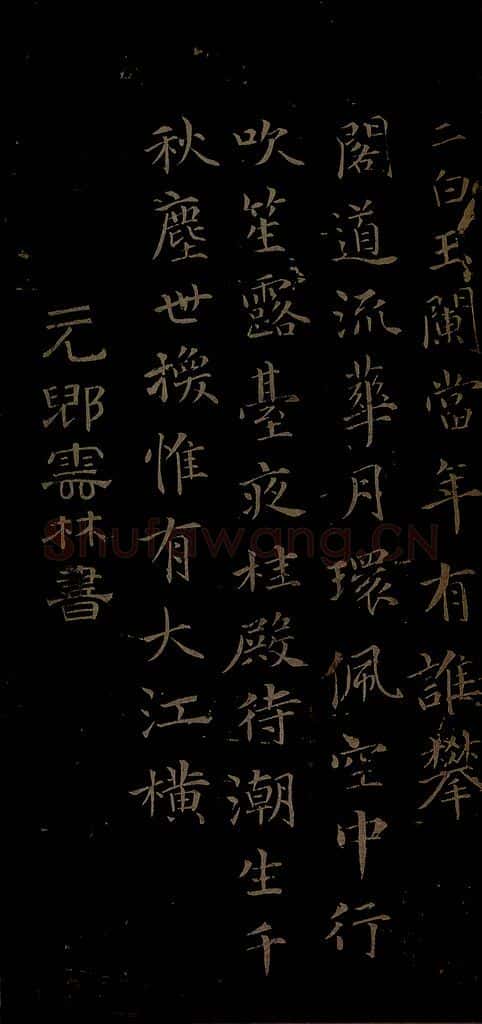 二白玉闌當年有誰攀
閣道流華月環佩空中行
吹笙露臺夜桂殿待潮生千
秋塵世換惟有大江橫
元郷雲林書
Shufawang.CN